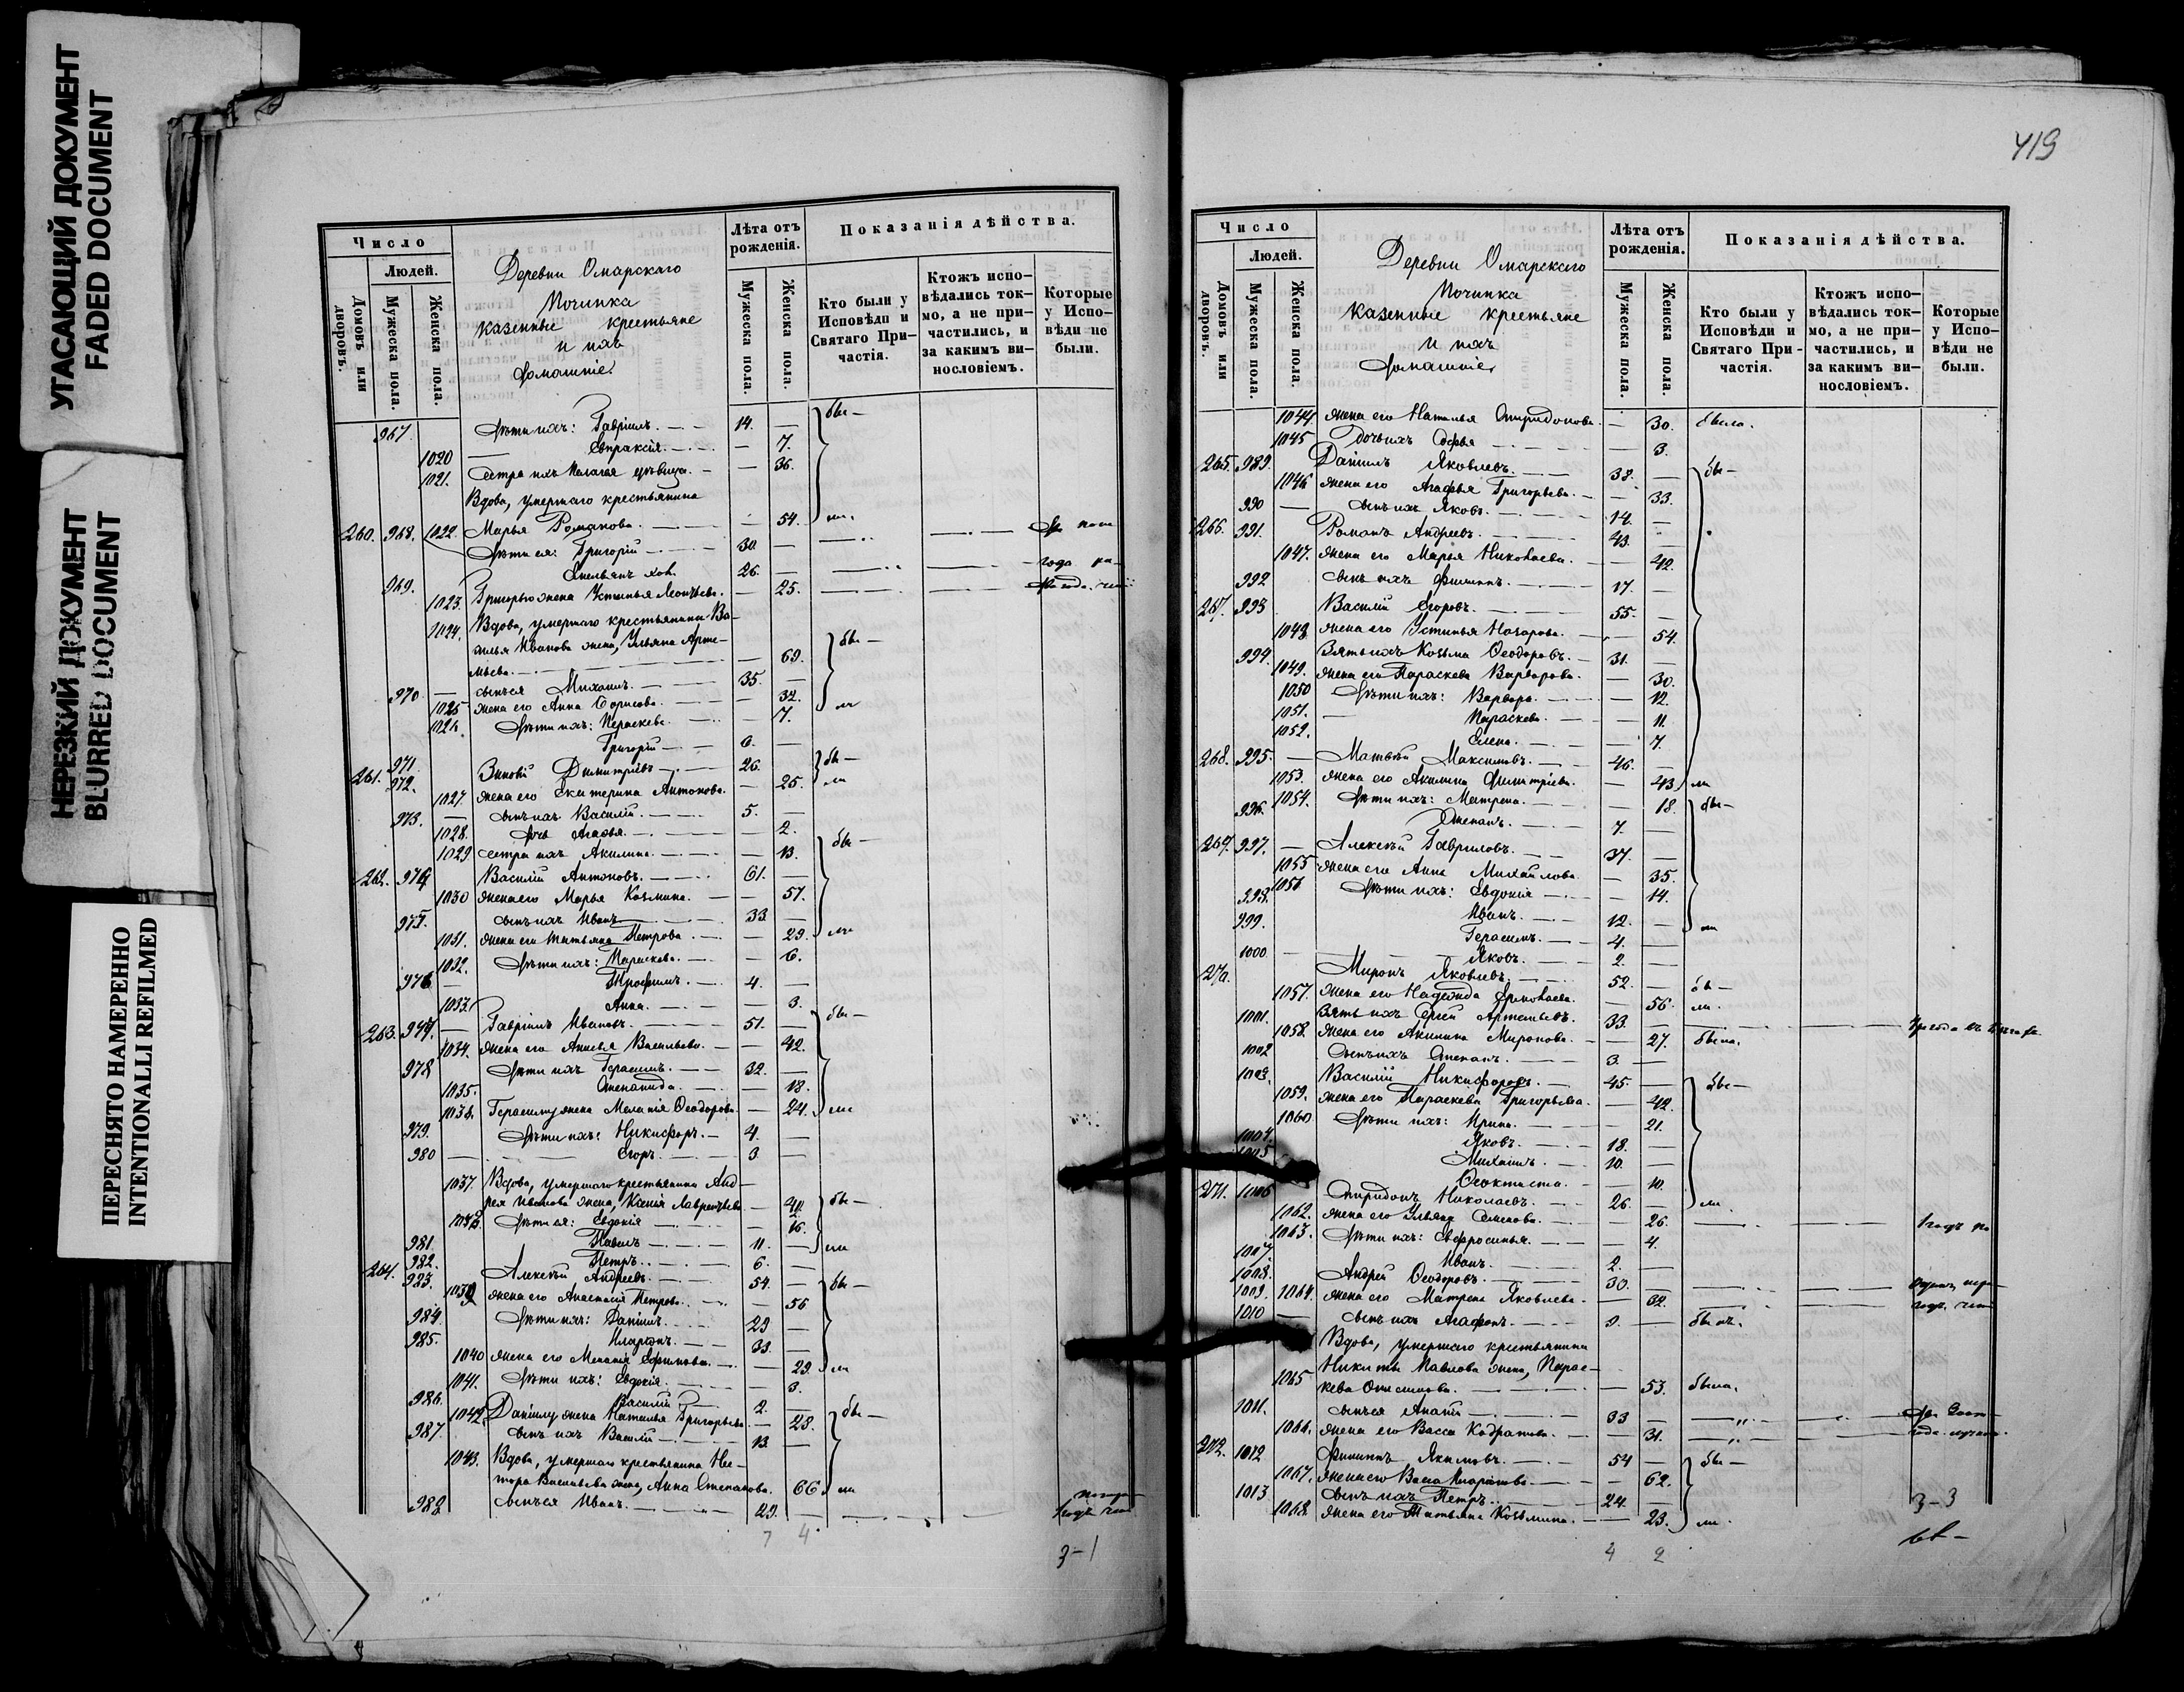 УГАСАЮЩИЙ ДОКУМЕНТ
FADED DOCUMENT
НЕРЕЗКИЙ ДОКУМЕНТ
BLURRED DOCUMENT
ПЕРЕСНЯТО НАМЕРЕННО
INTENTIONALLI REFILMED
Число
Людей.
Домовъ или дворовъ.
Мужеска пола.
Женска пола.
Деревни Омарскаго
Починка
казенные крестьяне
и ихъ
домашніе
Лѣта отъ рожденія.
Мужеска пола.
Женска пола.
Показанія дѣйства.
Кто были у Исповѣди и Святаго Причастія.
Ктожъ исповѣдались токмо, а не причастились, и за какимъ винословіемъ.
Которые у Исповѣди не были.
967. дѣти ихъ: Гавріилъ. 14. бы-
1020 Евпраксія. 7.
1021. сестра ихъ Пелагея дѣвица. 36.
Вдова, умершаго крестьянина
260. 968. 1022. Марья Романова. 54. ли.
дѣти ея: Григорій 30.
Емельянъ хол. 26. года
969. 1023. Григорью жена Устинья Леонтьева. 25.
1024. Вдова, умершаго крестьянина Ва-
силья Иванова жена, Ульяна Арте-
мьева. 69. бы-
970 сынъ ея Михаилъ. 35.
1025 жена его Анна Борисова. 32.
1026. дѣти ихъ: Параскева. 7. ли
971. Григорій 6.
261. 972. Зиновій Димитріевъ 26. бы-
1027. жена его Екатерина Антонова. 25. ли
973. сынъ ихъ Василій. 5.
1028. дочь Агафья. 2.
1029 сестра ихъ Акилина. 13. бы-
262. 974 Василій Антоновъ. 61.
1030 жена его Марья Козмина. 57.
975. сынъ ихъ Иванъ 33
1031. жена его Татьяна Петрова. 29. ли
1032. дѣти ихъ: Параскева. 6.
976 Трофимъ. 4.
1033. Анна. 3.
263. 977. Гавріилъ Ивановъ. 51. бы-
1034. жена его Анисья Васильева. 42.
978 дѣти ихъ Герасимъ. 32.
1035. Степанида. 18.
1036. Герасиму жена Меланія Ѳеодорова. 24. ли
979. дѣти ихъ: Никифоръ. 4.
980 Егоръ. 3.
1037. Вдова, умершаго крестьянина Анд-
рея Иванова жена, Ксенія Лаврентьева 42. бы-
1038. дѣти ея: Евдокія 16.
981. Павелъ 11. ли
982. Петръ. 6.
264. 983. Алексѣй Андреевъ. 54. бы-
1039 жена его Анастасія Петрова. 56
984. дѣти ихъ: Даніилъ 29
985. Иларіонъ. 33.
1040 жена его Меланія Ефимова. 29. ли
1041. дѣти ихъ: Евдокія. 3.
986. Василій 2.
1042 Даніилу жена Наталья Григорьева. 28. бы-
987. сынъ ихъ Василій 13.
1043. Вдова, умершаго крестьянина Нес-
тора Васильева жена, Анна Степанова. 66 ли
988 сынъ ея Иванъ. 29.
7 4
3-1
419
Число
Людей.
Домовъ или дворовъ.
Мужеска пола.
Женска пола.
Деревни Омарскаго
Починка
казенные крестьяне
и ихъ
домашніе
Лѣта отъ рожденія.
Мужеска пола.
Женска пола.
Показанія дѣйства.
Кто были у Исповѣди и Святаго Причастія.
Ктожъ исповѣдались токмо, а не причастились, и за какимъ винословіемъ.
Которые у Исповѣди не были.
1044. жена его Наталья Спиридонова. 30. была.
1045 дочь ихъ Софья 3.
265. 989. Даніилъ Яковлевъ. 38. бы-
1046 жена его Агафья Григорьева. 33.
990 сынъ ихъ Яковъ. 14.
266. 991. Романъ Андреевъ. 43.
1047. жена его Марья Николаева. 42.
992 сынъ ихъ Филиппъ. 17.
267. 993 Василій Егоровъ. 55.
1048. жена его Устинья Назарова. 54.
994. Зять ихъ Козьма Ѳеодоровъ. 31.
1049. жена его Параскева Варварова. 30.
1050 дѣти ихъ: Варвара. 12.
1051. Параскева. 11.
1052. Елена. 7.
268. 995. Матвѣй Максимовъ. 46.
1053. жена его Акилина Димитріева. 43. ли
1054. дѣти ихъ: Матрена. 18. бы-
996. Степанъ. 7.
269. 997. Алексѣй Гавриловъ. 37.
1055 жена его Анна Михайлова. 35.
1056 дѣти ихъ: Евдокія 14.
998. Иванъ. 12. ли
999. Герасимъ. 4.
1000 Яковъ. 2.
270. Миронъ Яковлевъ. 52. бы-
1057. жена его Надежда Ермолаева. 56. ли.
1001. Зять ихъ Сергій Артемьевъ. 33.
1058. жена его Акилина Миронова. 27. была.
1002 сынъ ихъ Степанъ. 3.
1003. Василій Никифоровъ. 45. бы-
1059. жена его Параскева Григорьева. 42.
1060 дѣти ихъ: Ирина. 21.
1004. Яковъ. 18.
1005 Михаилъ. 10.
Ѳеоктиста. 10.
271. 1006 Спиридонъ Николаевъ. 26. ли.
1062. жена его Ульяна Семенова. 26. 1 годъ по
1063. дѣти ихъ: Евфросинья. 4.
1007. Иванъ. 2.
1008. Андрей Ѳеодоровъ. 30.
1009. 1064. жена его Матрена Яковлева. 32.
1010 сынъ ихъ Агафонъ. 9. былъ.
Вдова, умершаго крестьянина
Никиты Павлова жена, Парас-
1065 кева Онисимова. 53. была.
1011. сынъ ея Анатій 33
1066. жена его Васса Кодратова. 31.
272. 1012 Филиппъ Якимовъ. 54 бы-
1067. жена его Васса Игнатьева 62.
1013 сынъ ихъ Петръ. 24
1068. жена его Татьяна Козьмина. 23. ли.
4 2
3-3